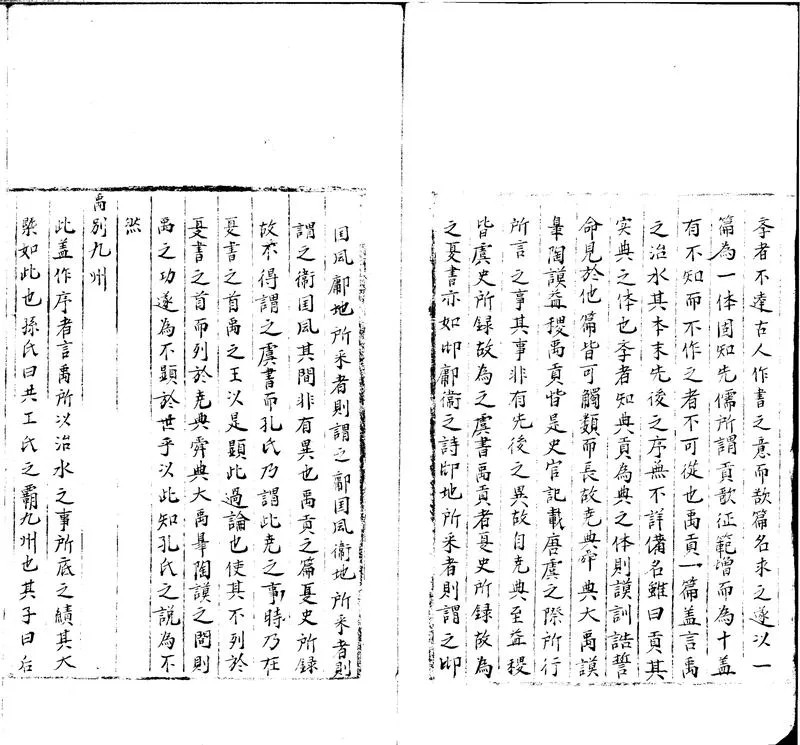 李者不達古人作書之意而欲篇名求之遂以一
篇為一体固知先儒所謂貢歌征範增而為十盖
有不知而不作之者不可從也禹貢一篇盖言禹
之治水其本末先後之序無不詳備名雖曰貢其
实典之体也李者知典貢為典之体則謨訓誥誓
命見於他篇皆可觸類而長故尭典舜典大禹謨
皐陶謨益稷禹貢皆是史官記載唐虞之際所行
所言之事其事非有先後之異故自尭典至益稷
皆虞史所録故為之虞書禹貢者夏史所録故為
之夏書亦如邶鄘衞之詩邶地所采者則謂之邶
国风鄘地所采者則謂之鄘国风衞地所采者則
謂之衞国风其間非有異也禹貢之篇夏史所録
故不得謂之虞書而孔氏乃謂此尭之事時乃在
夏書之首禹之王以是顕此過論也使其不列於
夏書之首而列於尭典舜典大禹皐陶謨之間則
禹之功遂為不顕於世乎以此知孔氏之説為不
然
禹别九州
此盖作序者言禹所以治水之事所底之績其大
槩如此也孫氏曰共工氏之霸九州也其子曰后